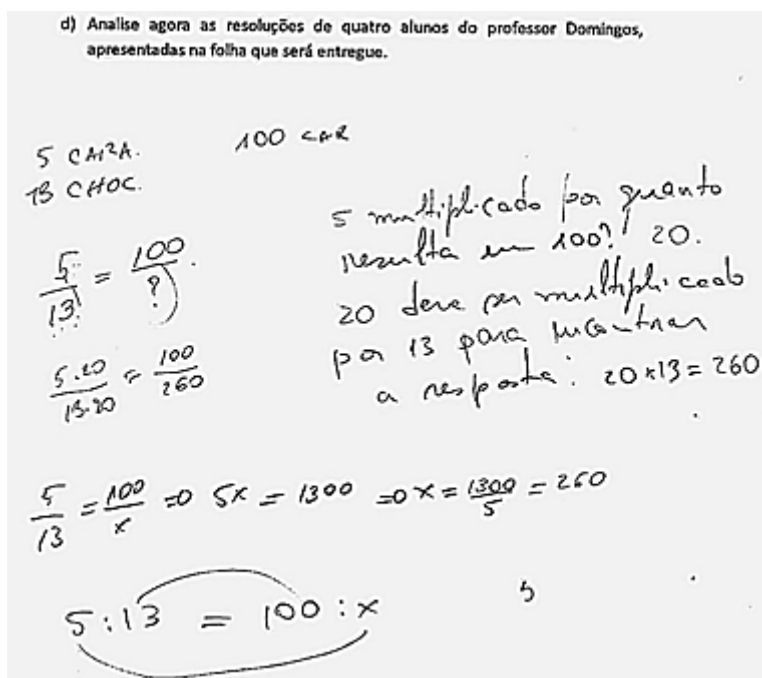 d) Analise agora as resoluções de quatro alunos do professor Domingos,
apresentadas na folha que será entregue.
5 CARA. 100 CAR
13 CHOC.
5/13 = 100/?
5 multiplicado por quanto
resulta em 100? 20.
20 deve ser multiplicado
por 13 para encontrar
a resposta: 20x13 = 260
5.20/13.20 = 100/260
5/13 = 100/x => 5x = 1300 => x = 1300/5 = 260
5:13 = 100:x
5